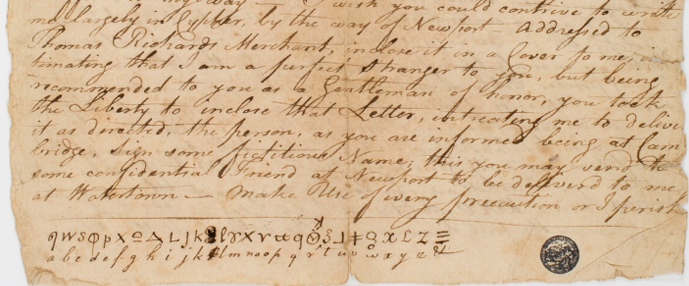 my way — I wish you could contrive to write
me largely in Cypher, by the way of Newport Addressed to
Thomas Richards Merchant, inclose it in a Cover to me, in
timating that I am a perfect Stranger to you, but being
recommended to you as a Gentleman of honor, you took
the Liberty to inclose that Letter, intreating me to deliver
it as directed, the person, as you are informed being at Cam
bridge, Sign some fictitious Name, this you may send to
some confidential Friend at Newport to be deliverd to me
at Watertown — Make Use of every precaution or I perish
a b c d e f g h i j k l m n o o p q r s t u v w x y z &